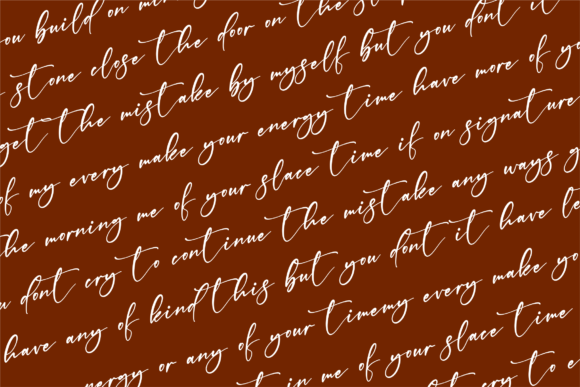 ou build on
stone close the door on the
get the mistake by myself but you dont it
of my every make your energy time have more of
the morning me of your slace time if on signature
dont cry to continue the mistake any ways
have any of kind this but you dont it have
energy or any of your timemy every make
in me of your slace time
cry to